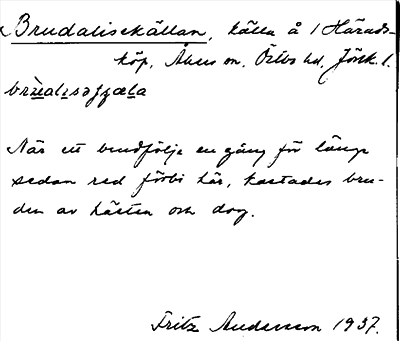 Brudalisekällan, källa å 1 Härads-
köp, Åkers sn. Östbo hd, Jönk. l.
brùdalisəɟɟæla
När ett brudfölje en gång för länge
sedan red förbi här, kastades bru-
den av hästen och dog.
Fritz Andersson 1937.